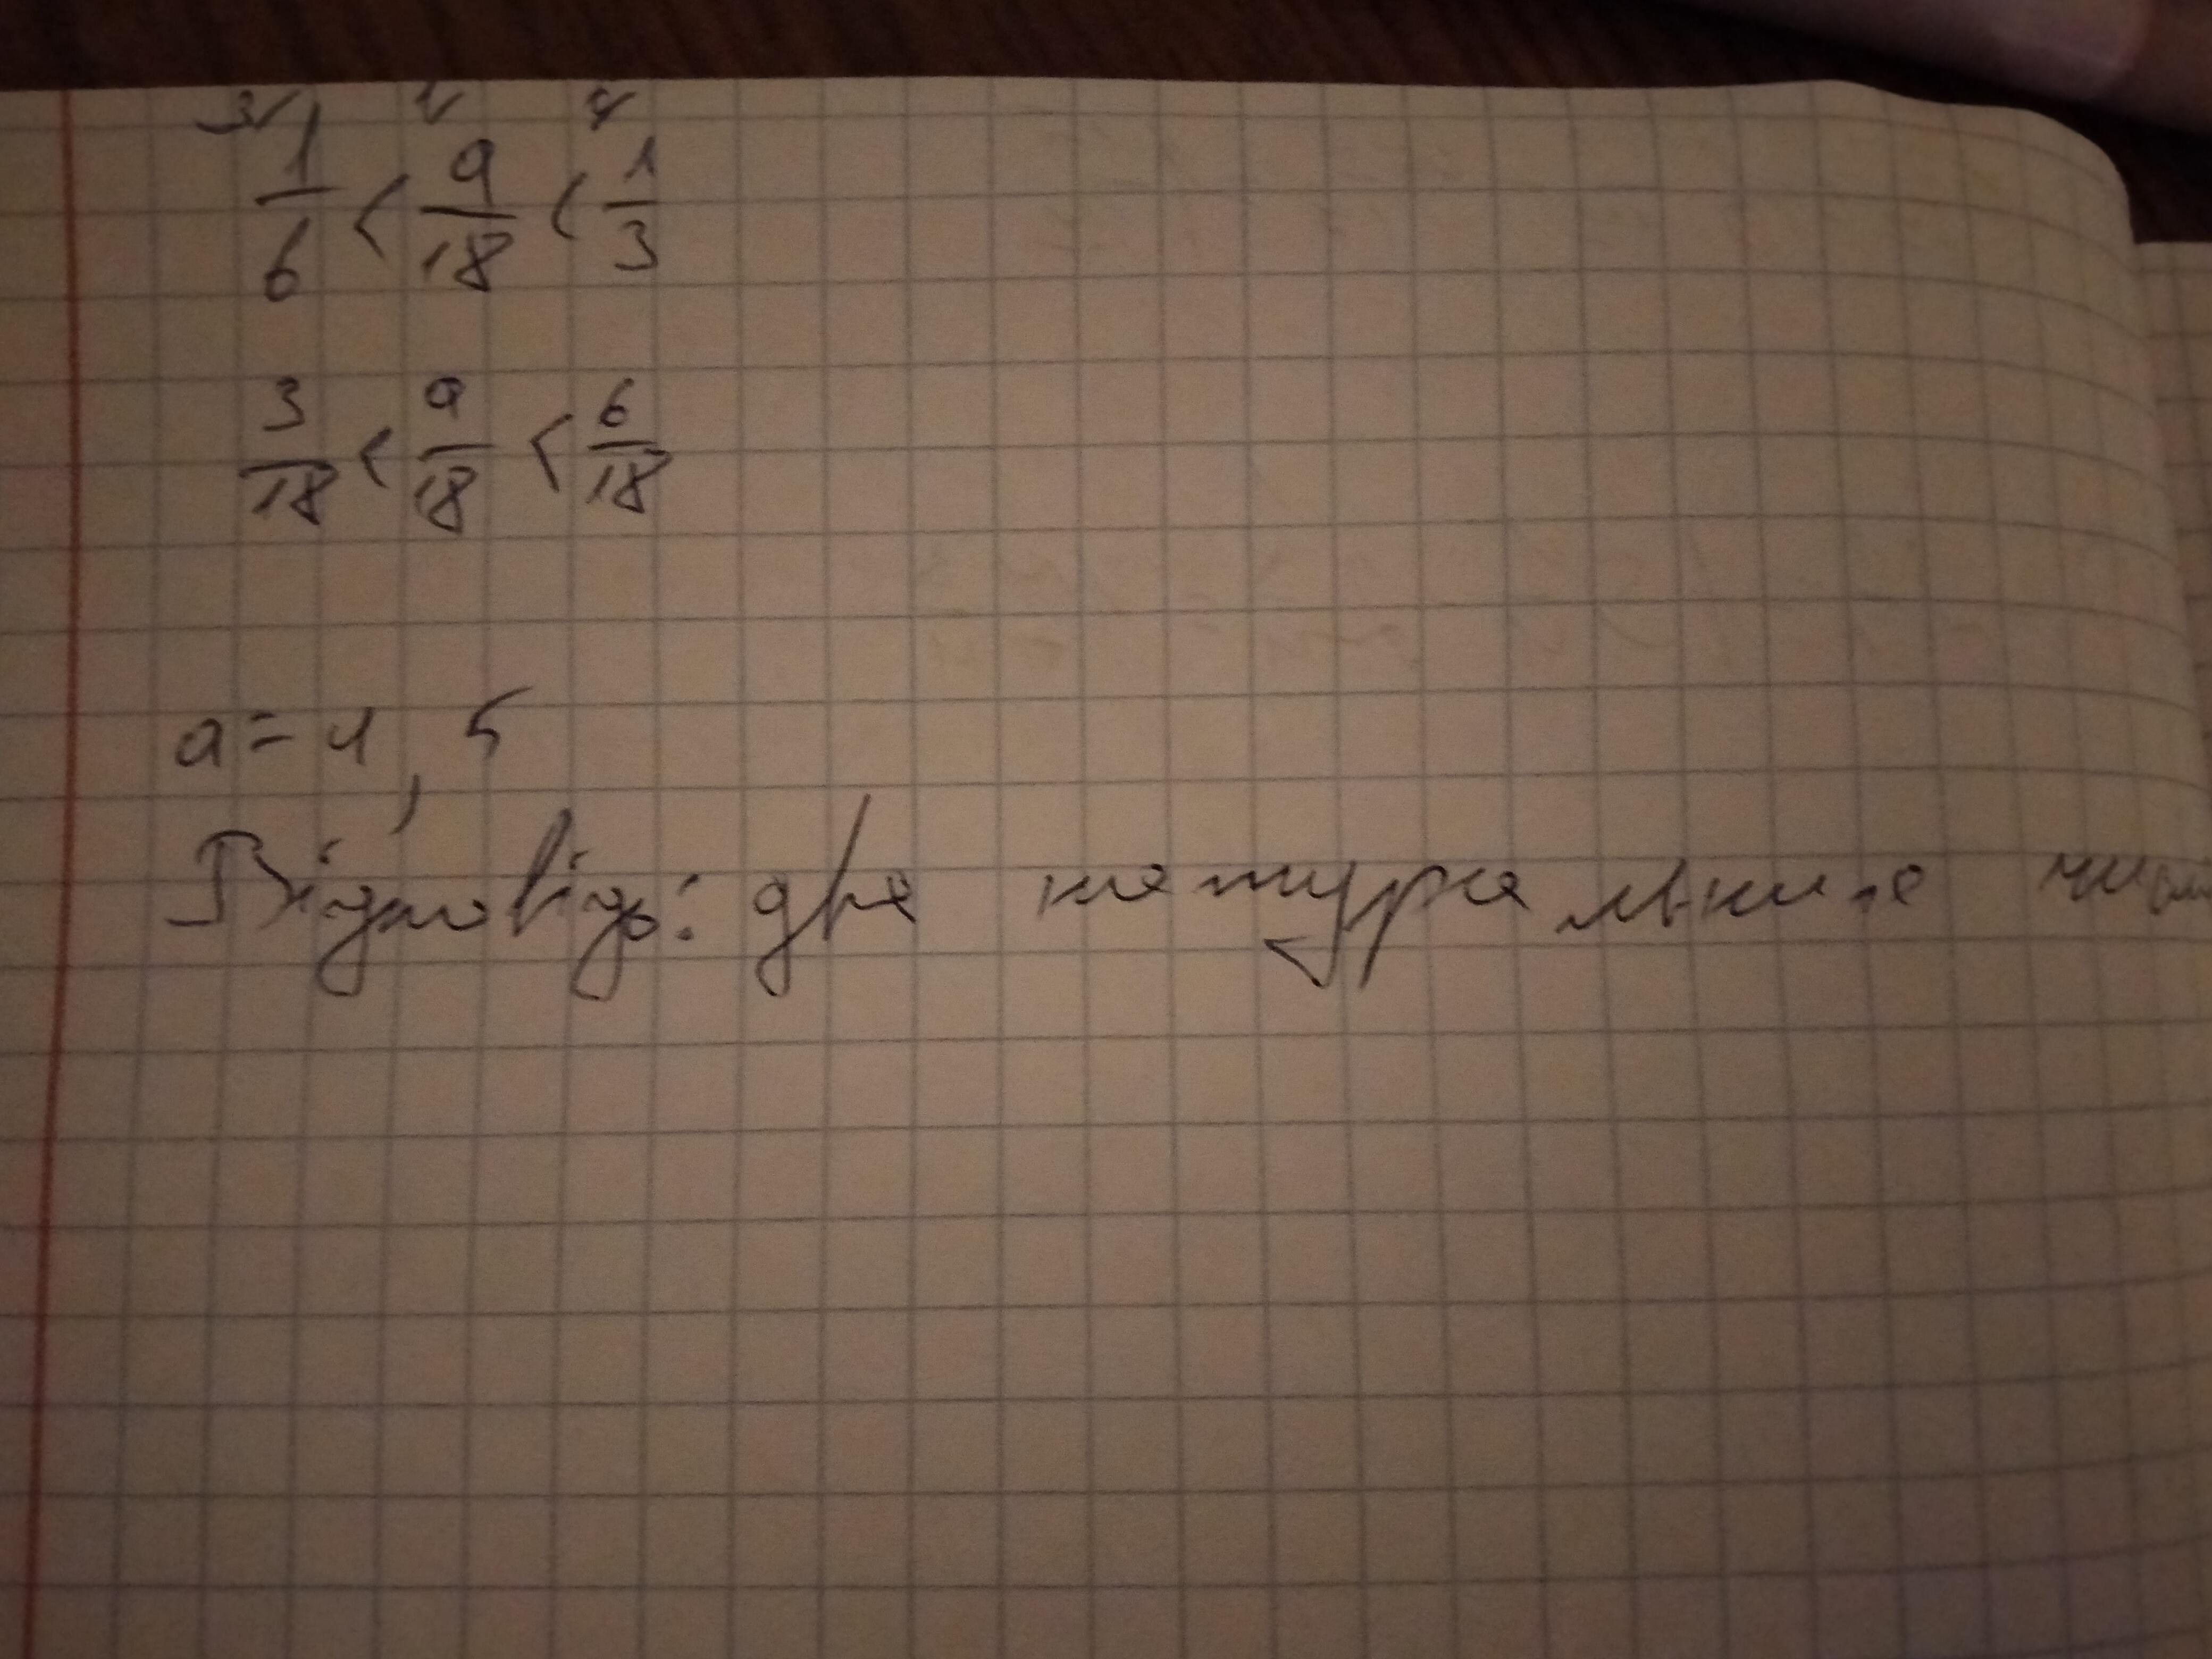 1/6 < a/18 < 1/3
3/18 < a/18 < 6/18
a = 4, 5
Відповідь: два натуральних